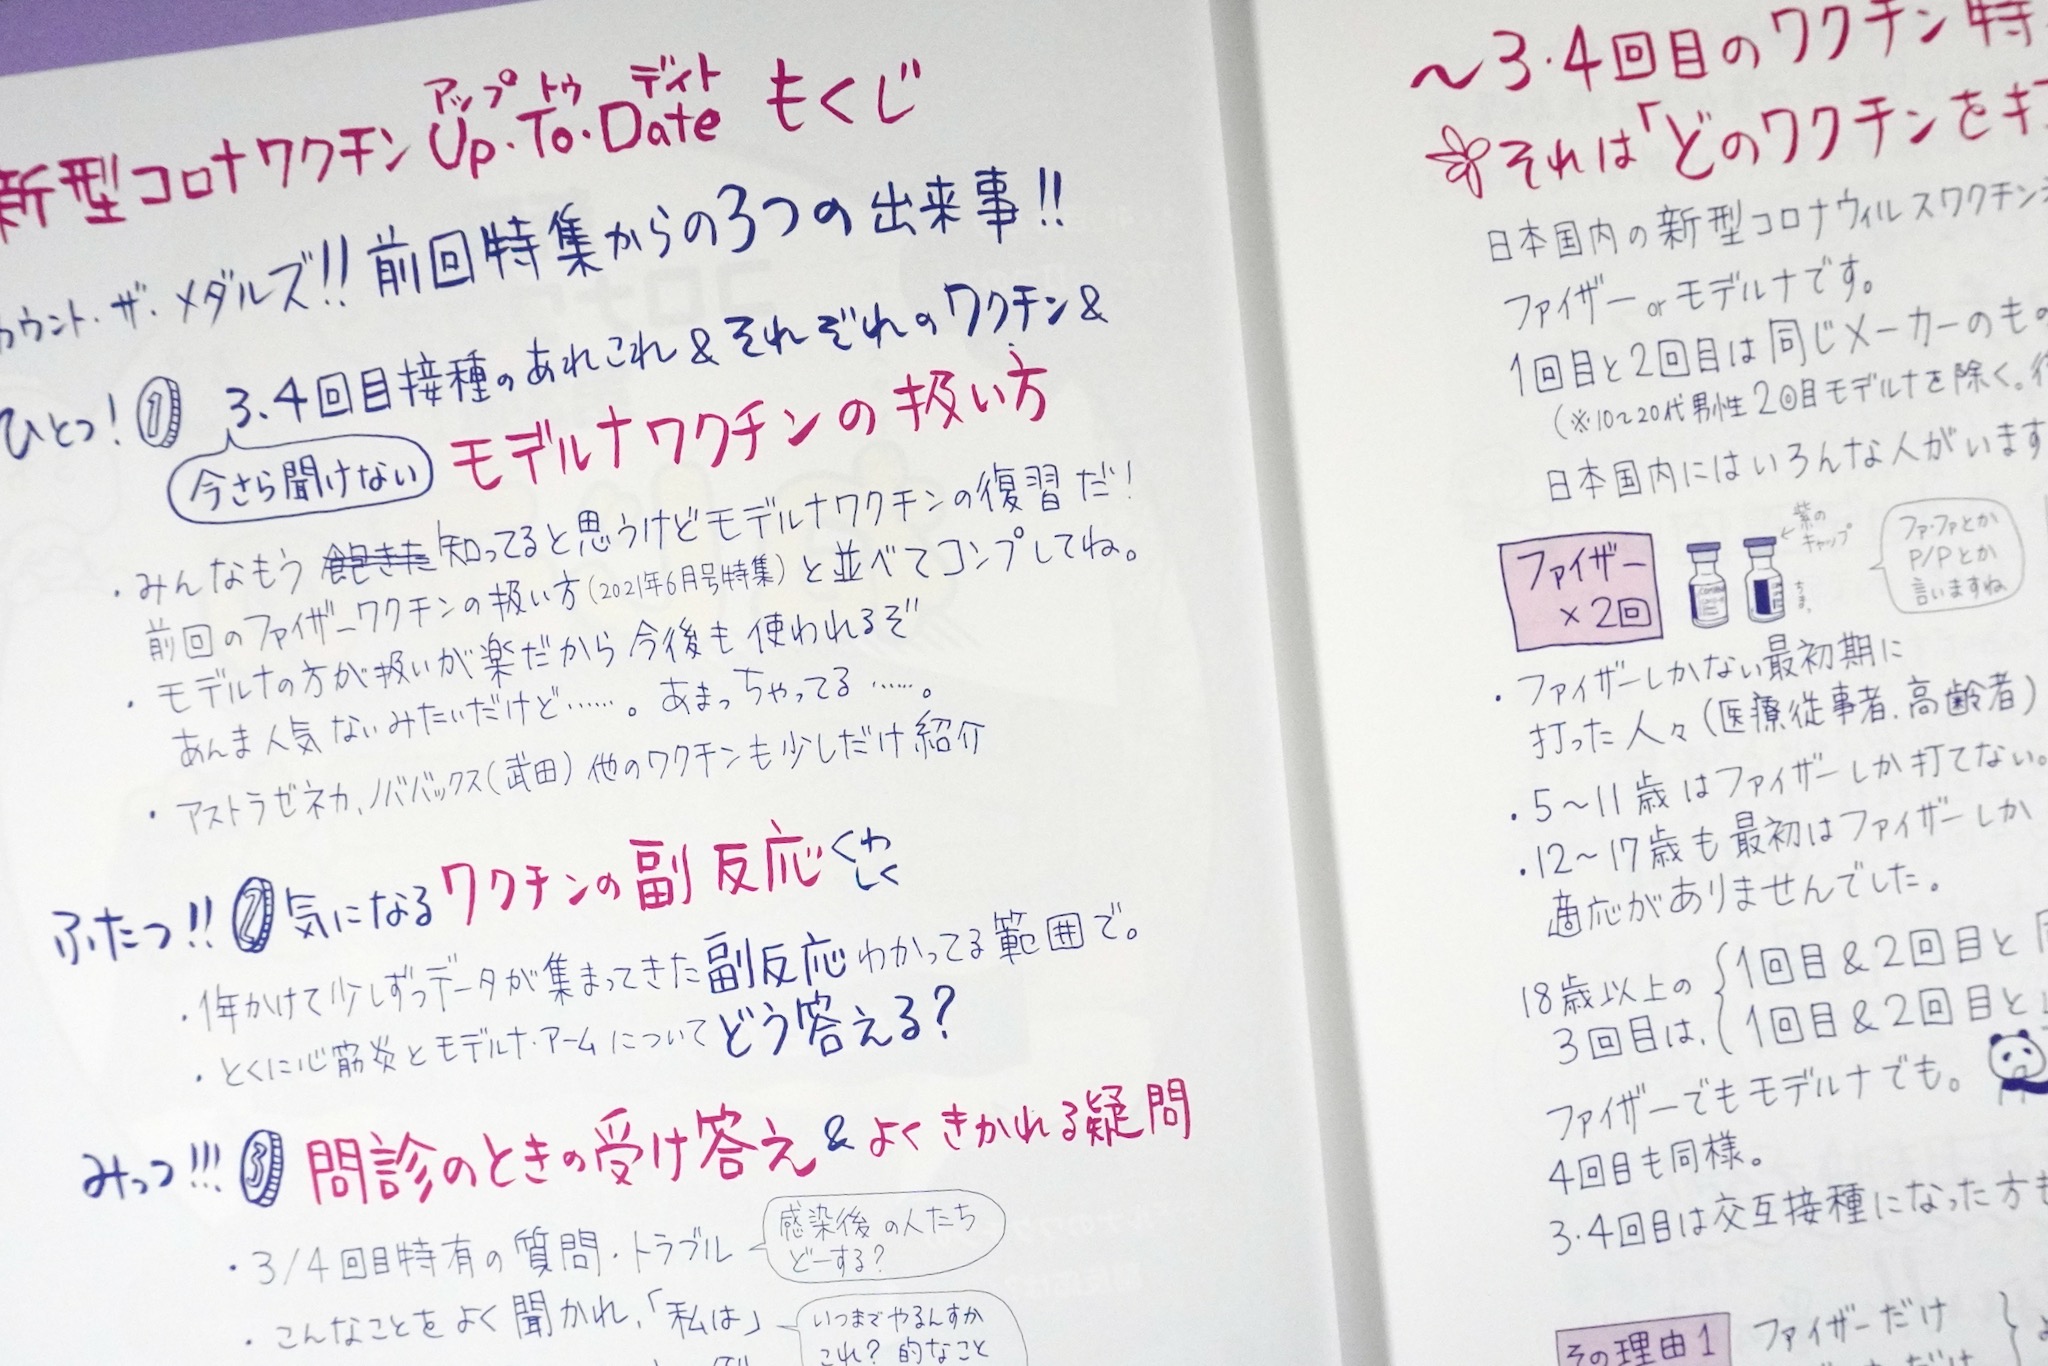 新型コロナワクチン Up・To・Date もくじ
アップ トゥ デイト
カウント・ザ・メダルズ!! 前回特集からの3つの出来事!!
ひとつ! 1 3、4回目接種のあれこれ & それぞれのワクチン &
今さら聞けない モデルナワクチンの扱い方
・みんなもう飽きた知ってると思うけどモデルナワクチンの復習だ!
前回のファイザーワクチンの扱い方(2021年6月号特集)と並べてコンプしてね。
・モデルナの方が扱いが楽だから今後も使われるぞ
あんま人気ないみたいだけど……。あまっちゃってる……。
・アストラゼネカ、ノババックス(武田)他のワクチンも少しだけ紹介
ふたつ!! 2 気になるワクチンの副反応くわしく
・1年かけて少しずつデータが集まってきた副反応わかってる範囲で。
・とくに心筋炎とモデルナ・アームについてどう答える?
みっつ!!! 3 問診のときの受け答え & よくきかれる疑問
・3/4回目特有の質問・トラブル
感染後の人たち
どーする?
・こんなことをよく聞かれ、「私は」
いつまでやるんすか
これ? 的なこと
〜3・4回目のワクチン特
それは「どのワクチンを
日本国内の新型コロナウィルスワクチン
ファイザー or モデルナです。
1回目と2回目は同じメーカーのもの
(※10〜20代男性2回目モデルナを除く。
日本国内にはいろんな人がいます
ファイザー
×2回
紫の
キャップ
ファ・ファとか
P/Pとか
言いますね
・ファイザーしかない最初期に
打った人々(医療従事者、高齢者)
・5〜11歳はファイザーしか打てない。
・12〜17歳も最初はファイザーしか
適応がありませんでした。
18歳以上の
3回目は、
1回目&2回目と
1回目&2回目と
ファイザーでもモデルナでも。
4回目も同様。
3・4回目は交互接種になった方も
その理由1
ファイザーだけ